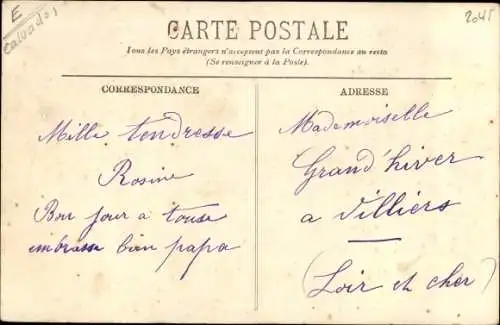 E
Calvados
2045
CARTE POSTALE
Tous les Pays étrangers n'acceptent pas la Correspondance au recto
(Se renseigner à la Poste).
CORRESPONDANCE
Mille tendresse
Rosine
Bon jour a touse
embrasse bien papa
ADRESSE
Mademoiselle
Grand'hiver
a Villiers
(Loir et cher)